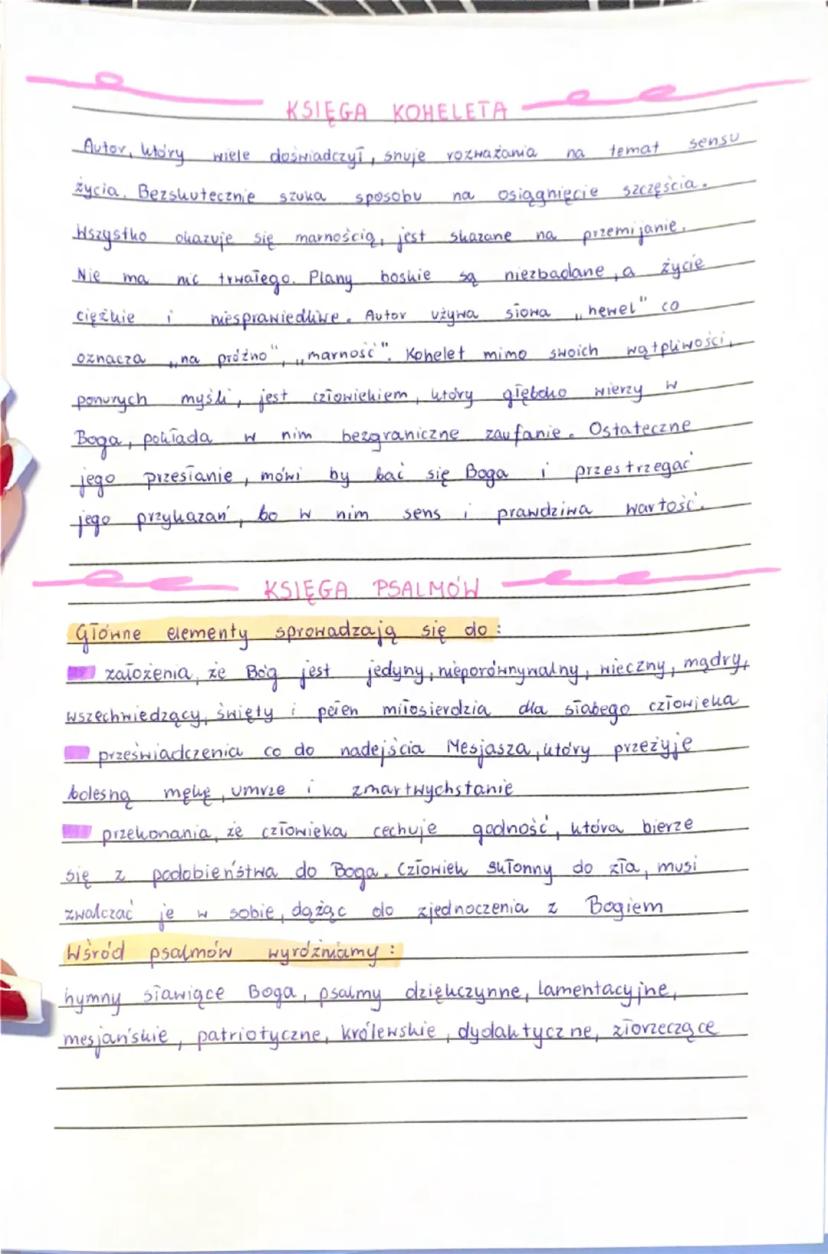 KSIĘGA KOHELETA
Autor, który wiele doświadczył, snuje rozważania na temat sensu
życia. Bezskutecznie szuka sposobu na osiągnięcie szczęścia.
Wszystko okazuje się marnością, jest skazane na przemijanie.
Nie ma nic trwałego. Plany boskie są niezbadane, a życie
ciężkie i niesprawiedliwe. Autor używa słowa „hewel" co
oznacza „na próżno", „marność". Kohelet mimo swoich wątpliwości,
ponurych myśli, jest człowiekiem, który głęboko wierzy w
Boga, pokłada w nim bezgraniczne zaufanie. Ostateczne
jego przesłanie, mówi by bać się Boga i przestrzegać
jego przykazań, bo w nim sens i prawdziwa wartość.
KSIĘGA PSALMÓW
Główne elementy sprowadzają się do:
założenia, że Bóg jest jedyny, nieporównywalny, wieczny, mądry,
wszechwiedzący, święty i pełen miłosierdzia dla słabego człowieka
przeświadczenia co do nadejścia Mesjasza, który przeżyje
bolesną mękę, umrze i zmartwychstanie
przekonania, że człowieka cechuje godność, która bierze
się z podobieństwa do Boga. Człowiek skłonny do zła, musi
zwalczać je w sobie, dążąc do zjednoczenia z Bogiem
Wśród psalmów wyróżniamy:
hymny sławiące Boga, psalmy dziękczynne, lamentacyjne,
mesjańskie, patriotyczne, królewskie, dydaktyczne, złorzeczące